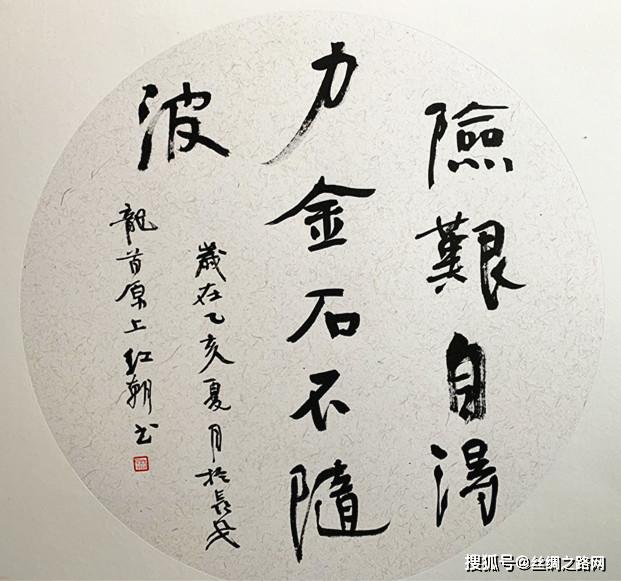 險艱自得
力金石不隨
波
歲在乙亥夏月於長安
龍首原上紅朝书
搜狐号@丝绸之路网